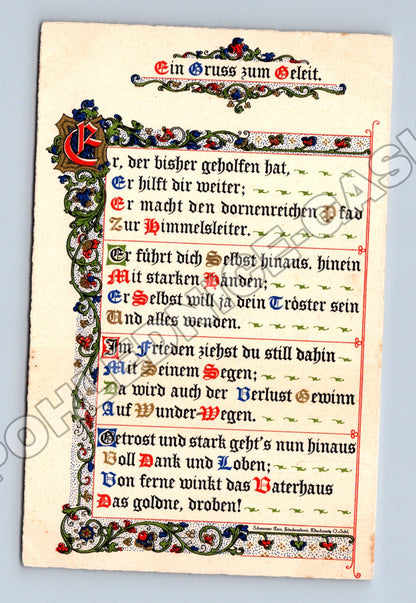 Ein Gruss zum Geleit.
Er, der bisher geholfen hat,
Er hilft dir weiter;
Er macht den dornenreichen Pfad
Zur Himmelsleiter.
Er führt dich Selbst hinaus, hinein
Mit starken Händen;
Er Selbst will ja dein Tröster sein
Und alles wenden.
Im Frieden ziehst du still dahin
Mit Seinem Segen;
Da wird auch der Verlust Gewinn
Auf Wunder-Wegen.
Getrost und stark geht's nun hinaus
Voll Dank und Loben;
Von ferne winkt das Vaterhaus
Das goldne, droben!